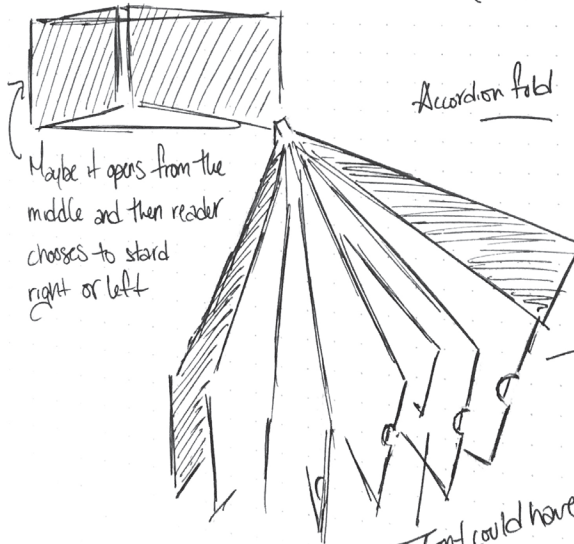 Accordion fold
Maybe it opens from the
middle and then reader
chooses to stard
right or left
could have